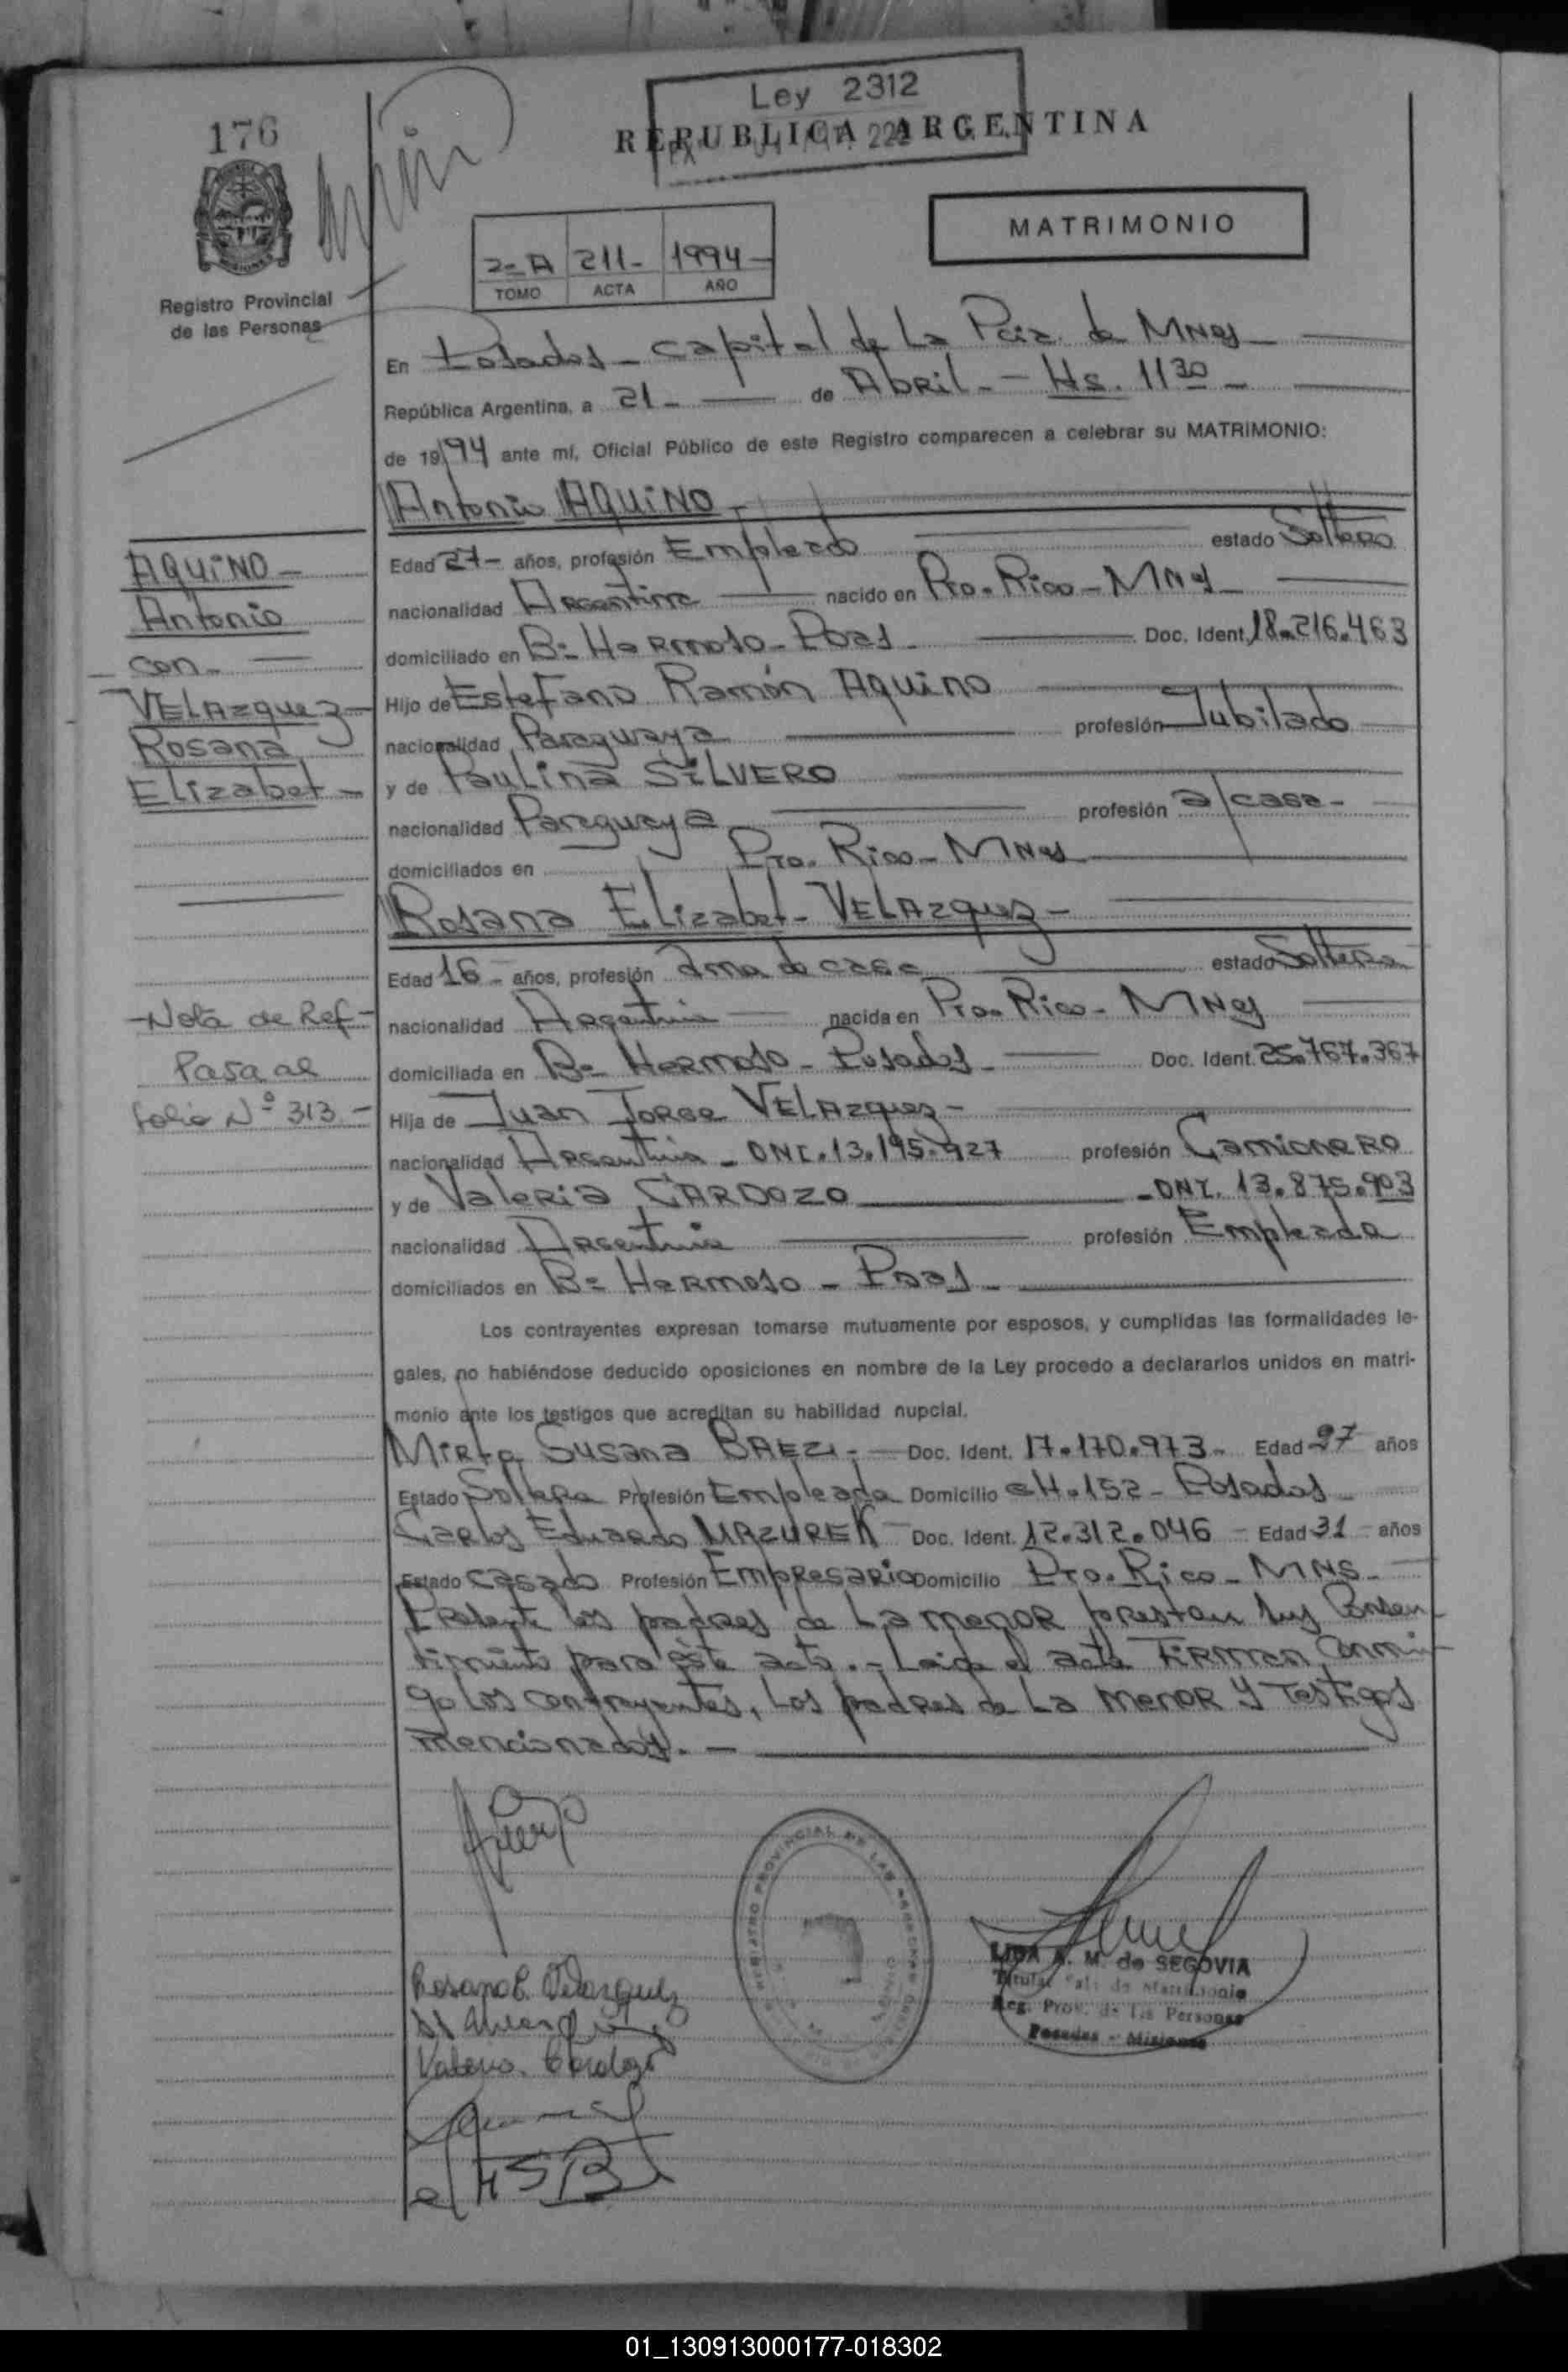 176
Ley 2312
REPUBLICA ARGENTINA
MATRIMONIO
2-A 211- 1994-
TOMO ACTA AÑO
Registro Provincial
de las Personas
En Posadas - Capital de La Pcia. de MNes
República Argentina, a 21 - de Abril - Hs. 11 30 -
de 1994 ante mí, Oficial Público de este Registro comparecen a celebrar su MATRIMONIO:
Antonio AQUINO -
Edad 27 - años, profesión Empleado estado Soltero
nacionalidad Argentina nacido en Pto. Rico - MNes
domiciliado en Bº Hermoso - Pdas - Doc. Ident. 18.216.463
Hijo de Estefano Ramón Aquino
nacionalidad Paraguaya profesión Jubilado
y de Paulina SILVERO
nacionalidad Paraguaya profesión a/casa -
domiciliados en Pto. Rico - MNes
Rosana Elizabet - VELAzquez -
Edad 16 - años, profesión ama de casa estado Soltera
nacionalidad Argentina nacida en Pto. Rico - MNes
domiciliada en Bº Hermoso - Posadas - Doc. Ident. 25.767.367
Hija de Juan Jorge VELAzquez -
nacionalidad Argentina - DNI. 13.195.927 profesión Camionero
y de Valeria CARDOZO - DNI. 13.875.903
nacionalidad Argentina profesión Empleada
domiciliados en Bº Hermoso - Pdas -
Los contrayentes expresan tomarse mutuamente por esposos, y cumplidas las formalidades le-
gales, no habiéndose deducido oposiciones en nombre de la Ley procedo a declararlos unidos en matri-
monio ante los testigos que acreditan su habilidad nupcial.
Mirta Susana BAEZ - Doc. Ident. 17.170.973 - Edad 27 años
Estado Soltera Profesión Empleada Domicilio CH.152 - Posadas -
Carlos Eduardo MAZUREK - Doc. Ident. 12.312.046 - Edad 31 - años
Estado Casado Profesión Empresario Domicilio Pto. Rico - MNS -
Presente los padres de La menor prestan sus Consen
timiento para éste acto. - Leida el acta Firman Conmi
go los contrayentes, Los padres de La menor y Testigos
mencionados. -
AQUINO -
Antonio
con -
VELAzquez
Rosana
Elizabet -
- Nota de Ref -
Pasa al
folio Nº 313 -
Rosana E. Velazquez
Valeria Cardozo
REGISTRO PROVINCIAL DE LAS PERSONAS
LIDA A. M. de SEGOVIA
Titular Sala de Matrimonio
Reg. Prov. de las Personas
Posadas - Misiones
01_130913000177-018302